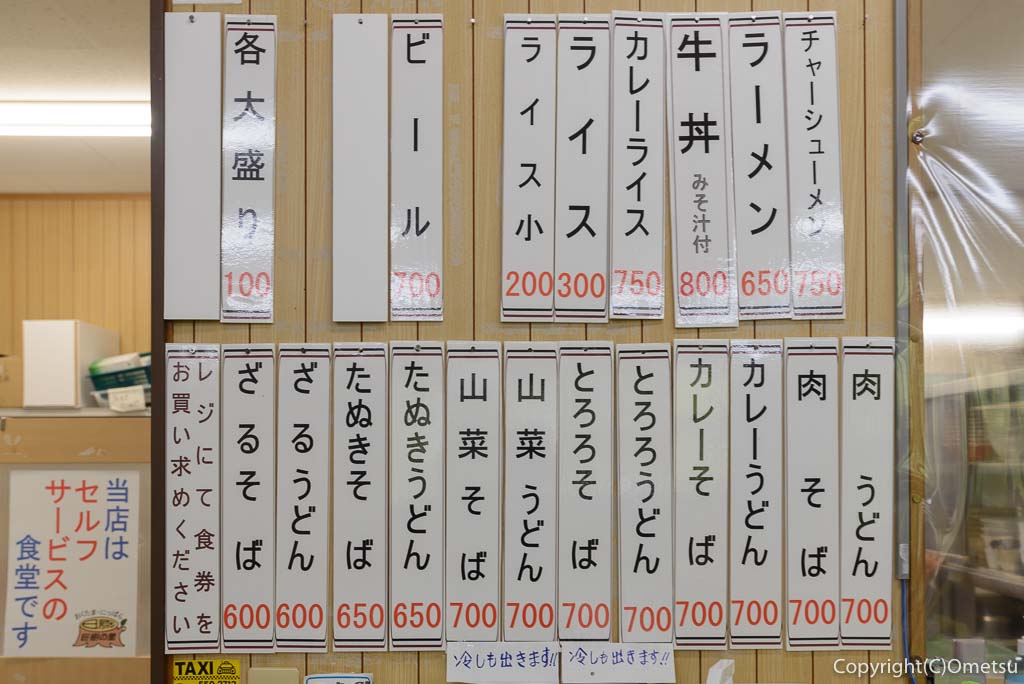 チャーシューメン 750
ラーメン 650
牛丼 みそ汁付 800
カレーライス 750
ライス 300
ライス小 200
ビール 700
各大盛り 100
肉うどん 700
肉そば 700
カレーうどん 700
カレーそば 700
とろろうどん 700
とろろそば 700
山菜うどん 700
山菜そば 700
たぬきうどん 650
たぬきそば 650
ざるうどん 600
ざるそば 600
レジにて食券を
お買い求めください
冷しも出きます!!
冷しも出きます!!
当店は
セルフ
サービスの
食堂です
TAXI
Copyright(C)Ometsu